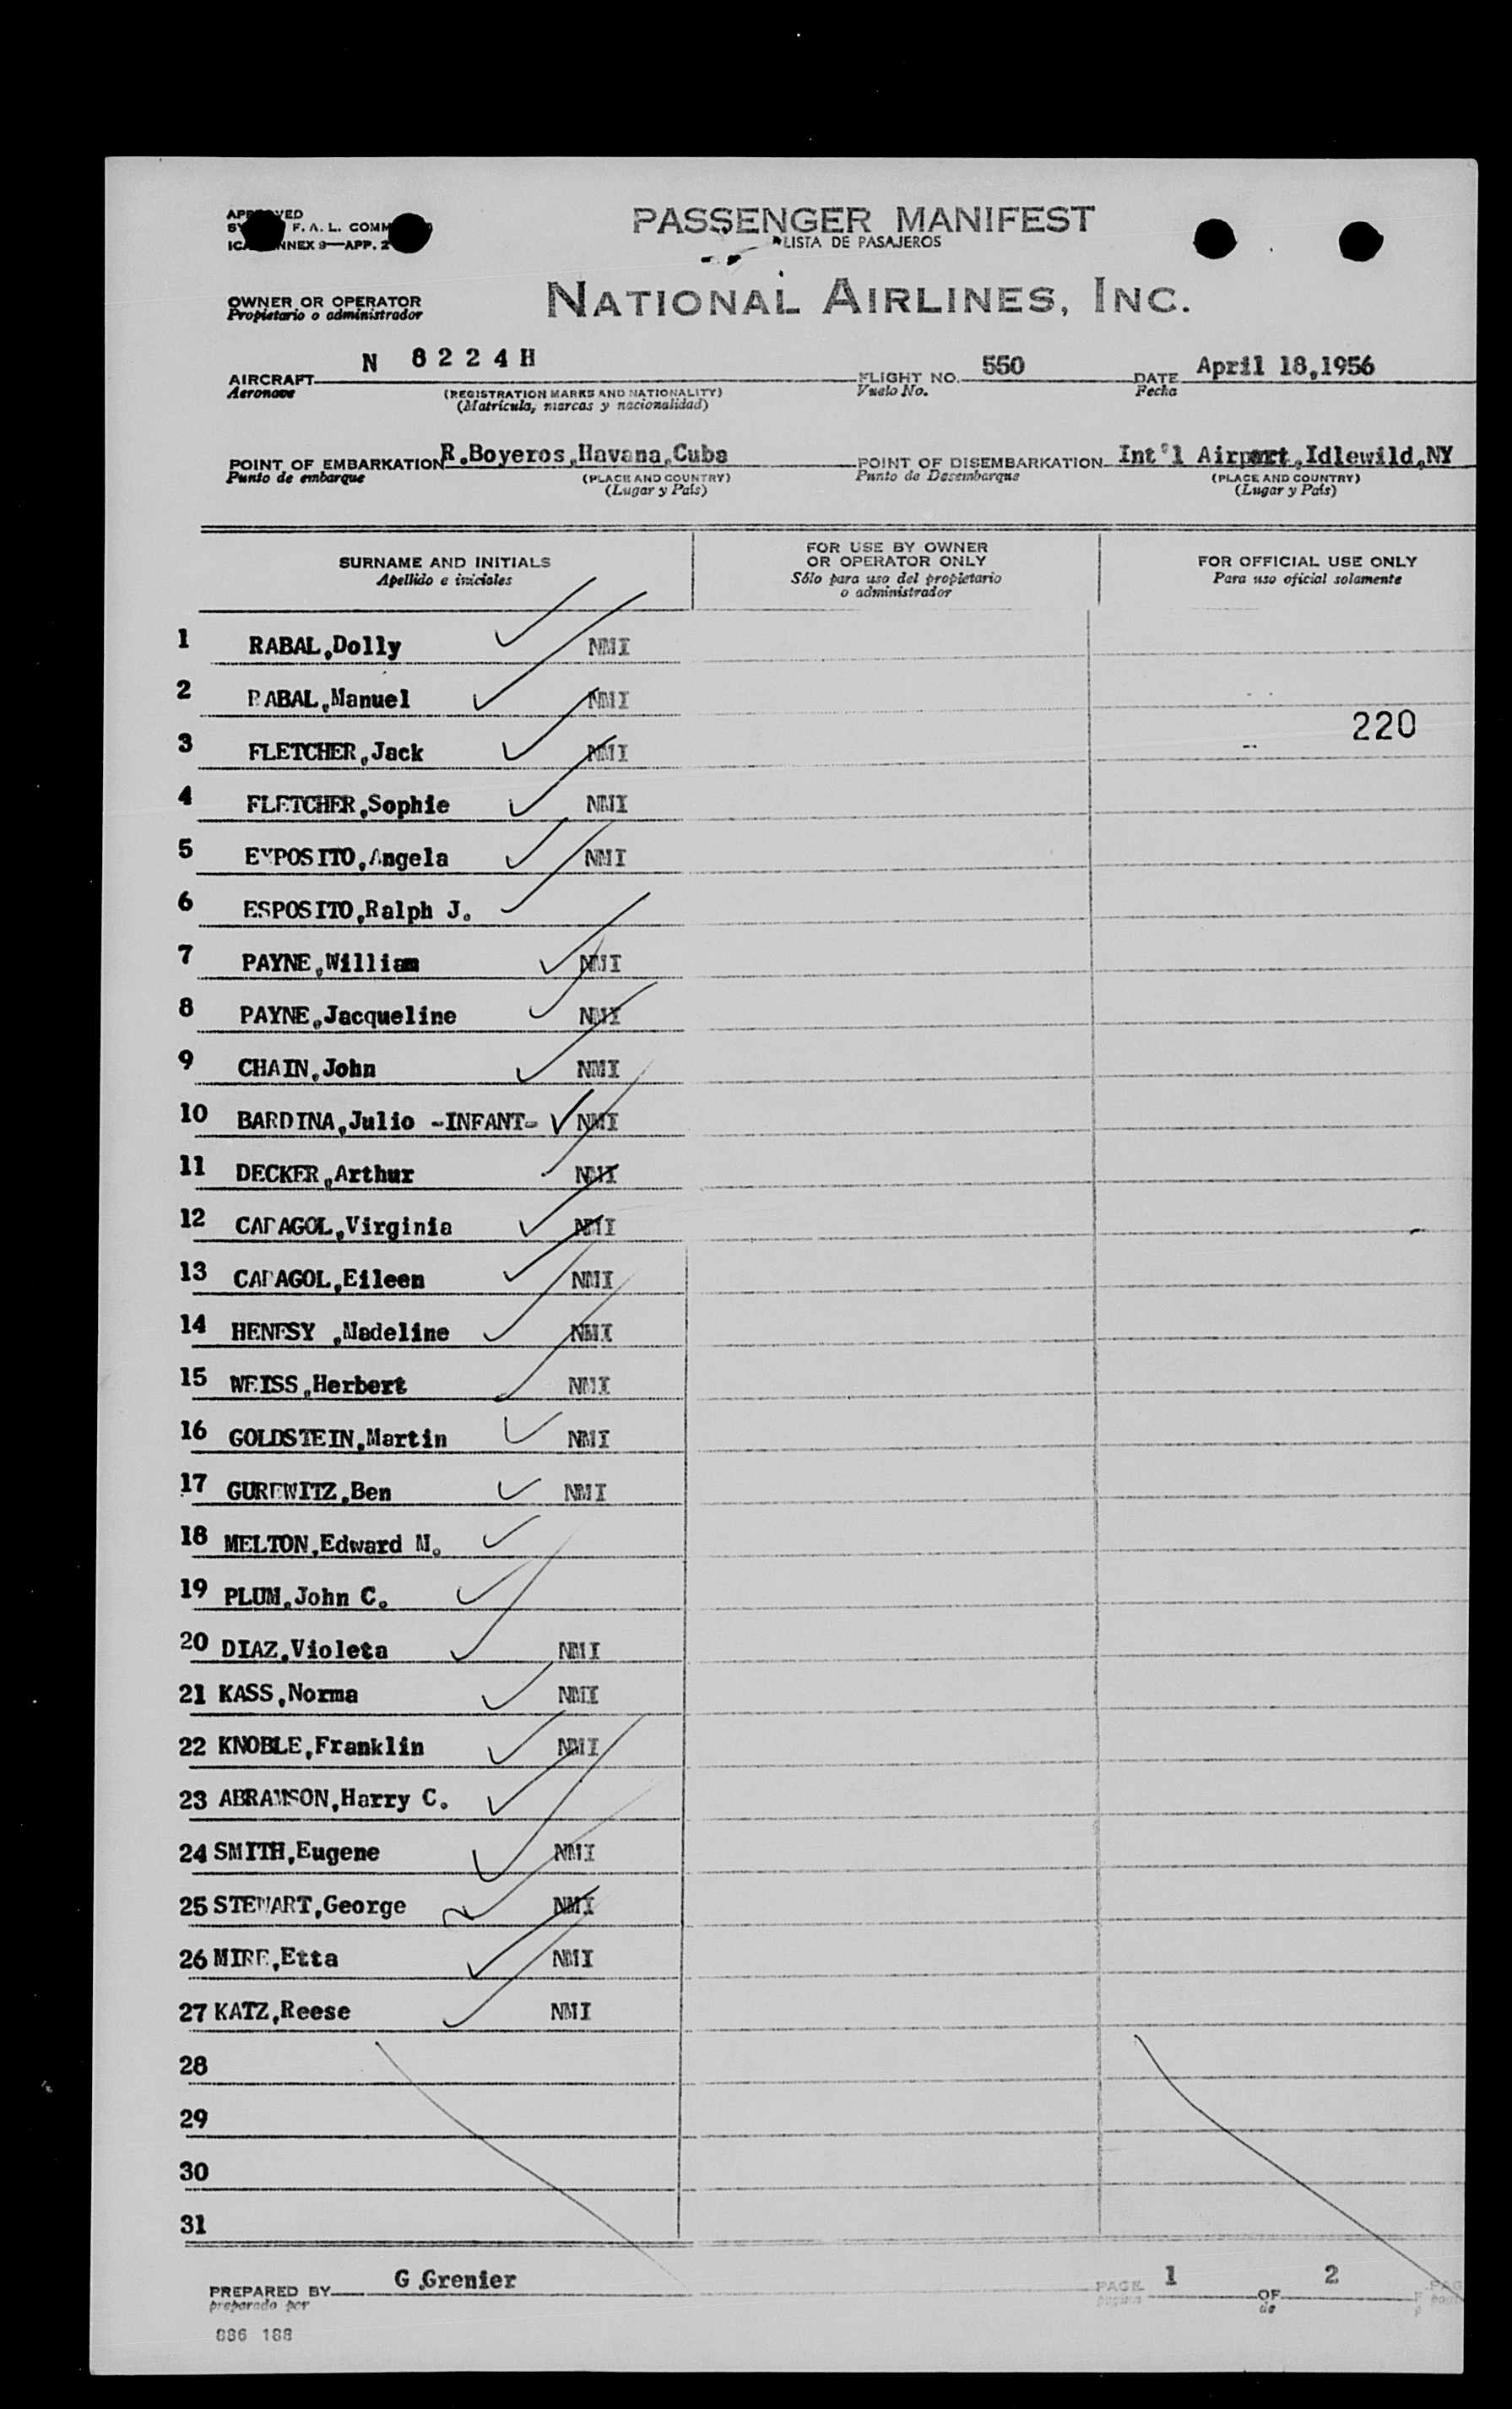 APPROVED
BY F. A. L. COMM
ICAO ANNEX 9—APP. 2
PASSENGER MANIFEST
LISTA DE PASAJEROS
OWNER OR OPERATOR
Propietario o administrador
NATIONAL AIRLINES, INC.
AIRCRAFT N 8 2 2 4 H FLIGHT NO. 550 DATE April 18,1956
Aeronave (REGISTRATION MARKS AND NATIONALITY) Vuelo No. Fecha
(Matrícula, marcas y nacionalidad)
POINT OF EMBARKATION R.Boyeros,Havana,Cuba POINT OF DISEMBARKATION Int'l Airport,Idlewild,NY
Punto de embarque (PLACE AND COUNTRY) Punto de Desembarque (PLACE AND COUNTRY)
(Lugar y País) (Lugar y País)
SURNAME AND INITIALS
Apellido e iniciales
FOR USE BY OWNER
OR OPERATOR ONLY
Sólo para uso del propietario
o administrador
FOR OFFICIAL USE ONLY
Para uso oficial solamente
1 RABAL,Dolly NMI
2 RABAL,Manuel NMI
220
3 FLETCHER,Jack NMI
4 FLETCHER,Sophie NMI
5 EXPOSITO,Angela NMI
6 ESPOSITO,Ralph J.
7 PAYNE,William NMI
8 PAYNE,Jacqueline NMI
9 CHAIN,John NMI
10 BARDINA,Julio -INFANT- NMI
11 DECKER,Arthur NMI
12 CARAGOL,Virginia NMI
13 CARAGOL,Eileen NMI
14 HENESY ,Madeline NMI
15 WEISS,Herbert NMI
16 GOLDSTEIN,Martin NMI
17 GUREWITZ,Ben NMI
18 MELTON,Edward M.
19 PLUM,John C.
20 DIAZ,Violeta NMI
21 KASS,Norma NMI
22 KNOBLE,Franklin NMI
23 ABRAMSON,Harry C.
24 SMITH,Eugene NMI
25 STEWART,George NMI
26 MIRE,Etta NMI
27 KATZ,Reese NMI
28
29
30
31
PREPARED BY G.Grenier PAGE 1 OF 2
preparado por página de
886 188